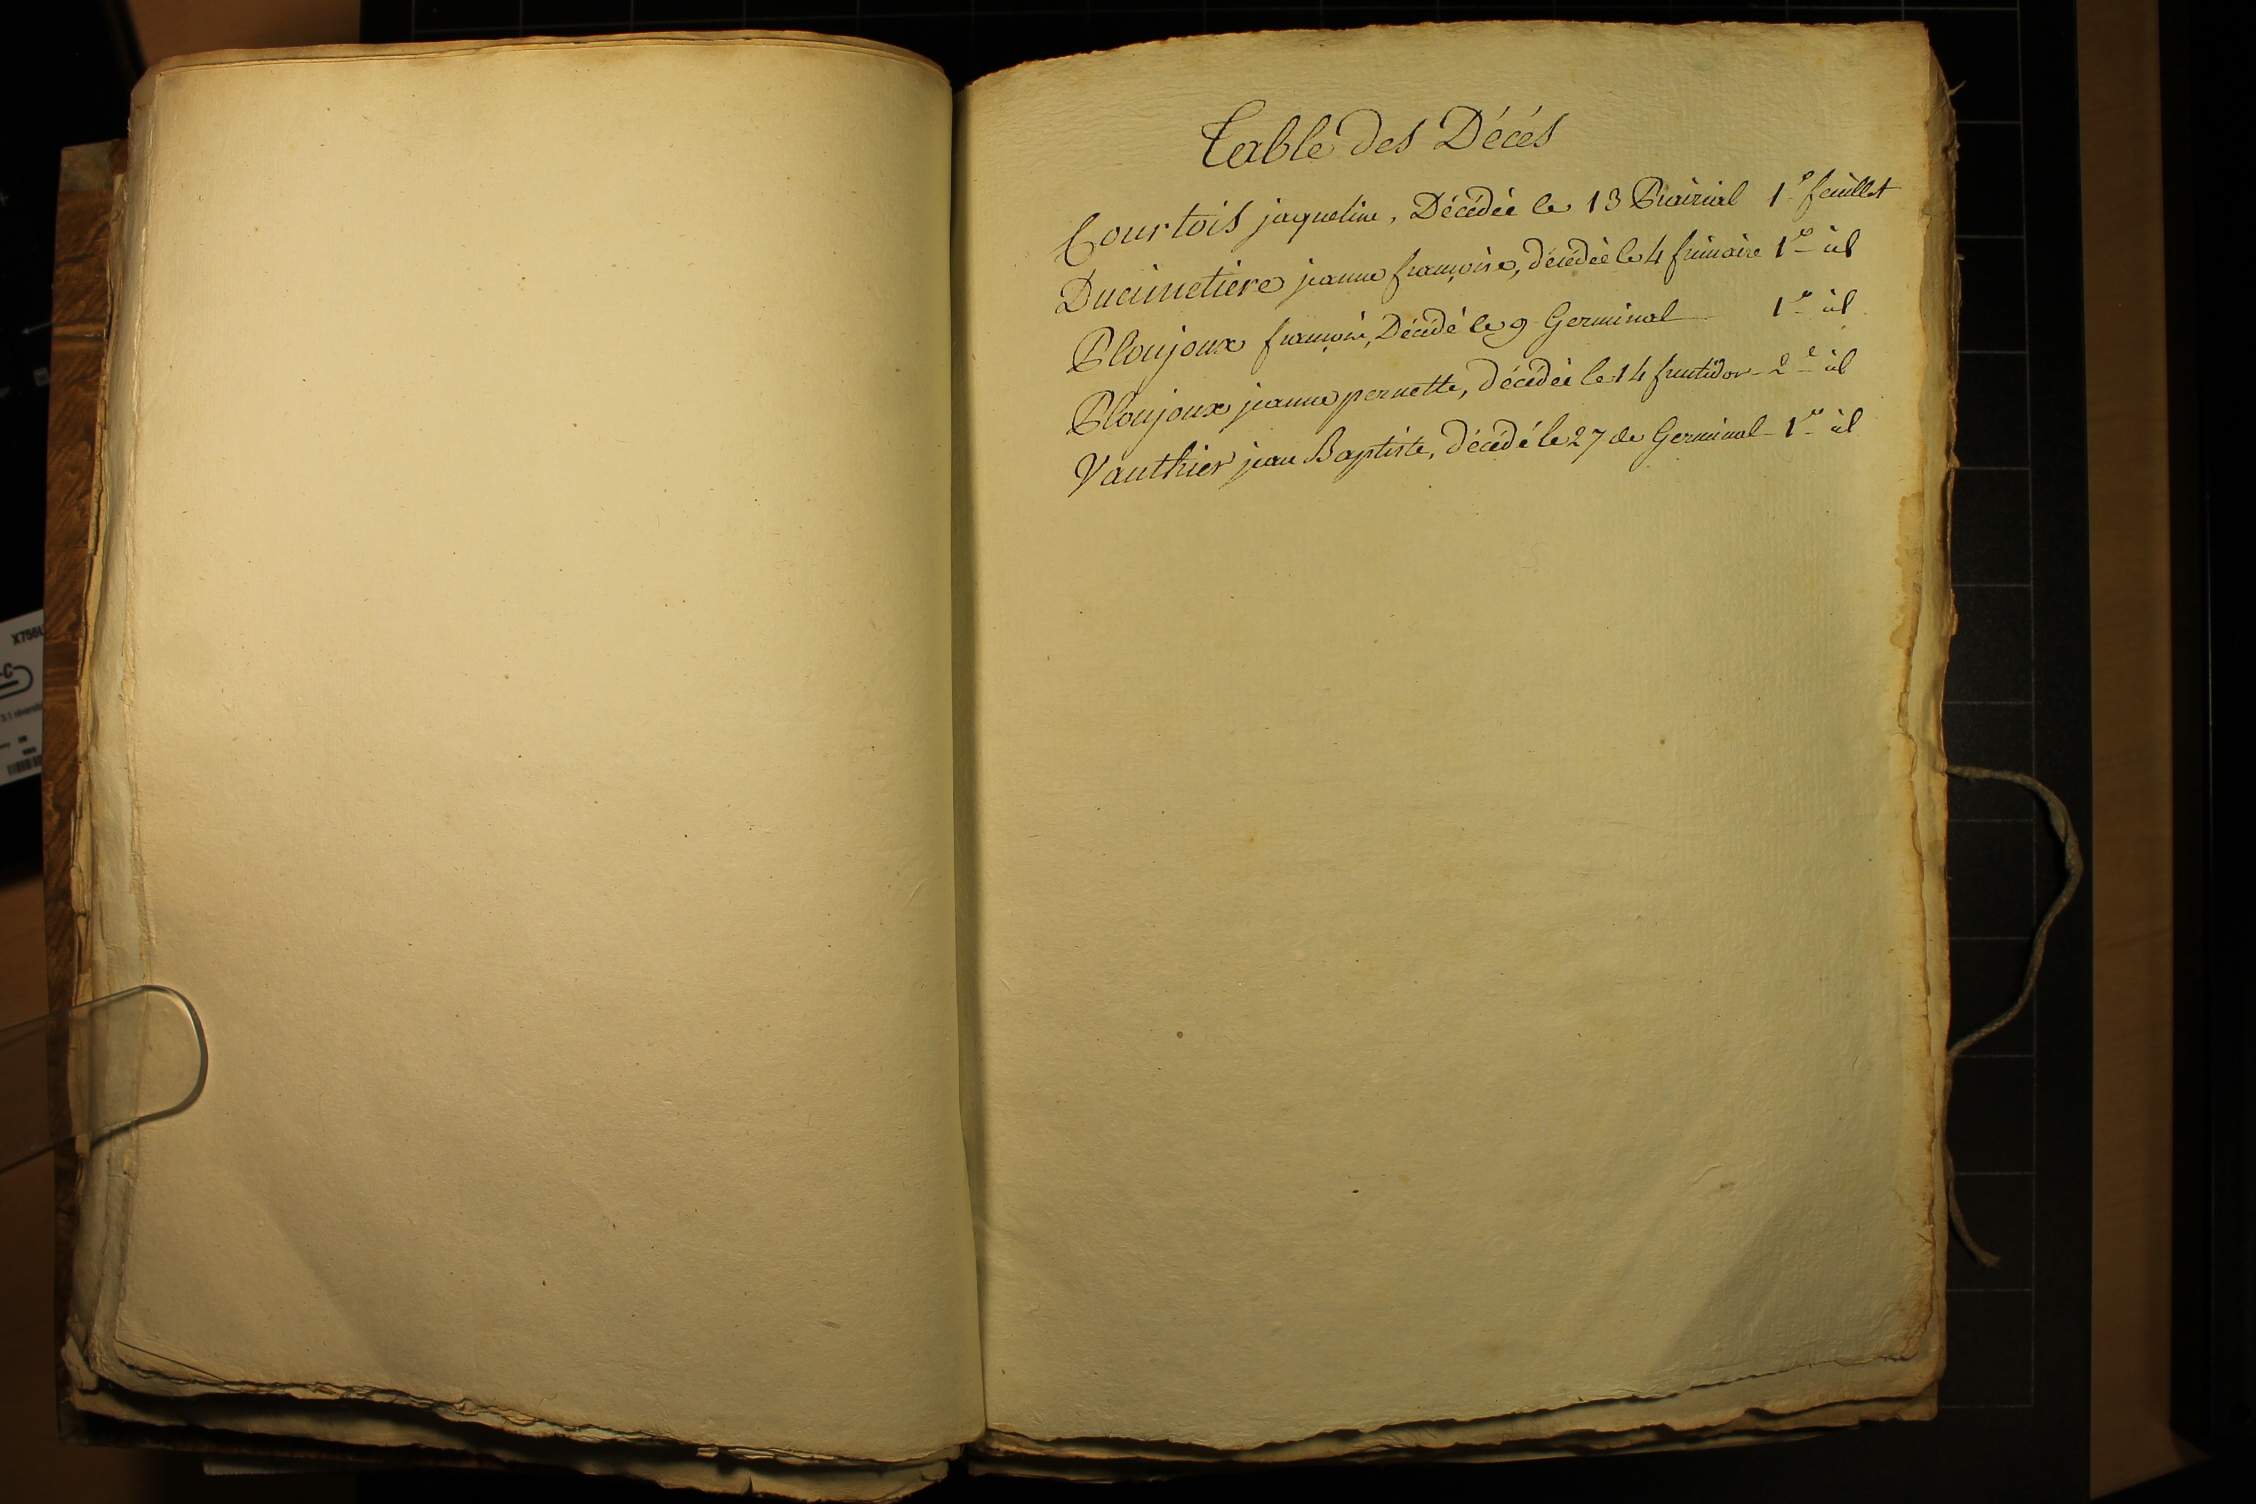 Table des Décés
Courtois jaqueline, Décédée le 13 Prairial 1.er feuillet
Ducimetiere jeanne françoise, décédée le 4 frimaire 1.er id
Ploujoux françois, Décédé le 9 Germinal 1.er id
Ploujoux jeanne pernette, décédée le 14 fructidor - 2.e id
Vauthier jean Baptiste, décédé le 27 de Germinal - 1.er id
X756U